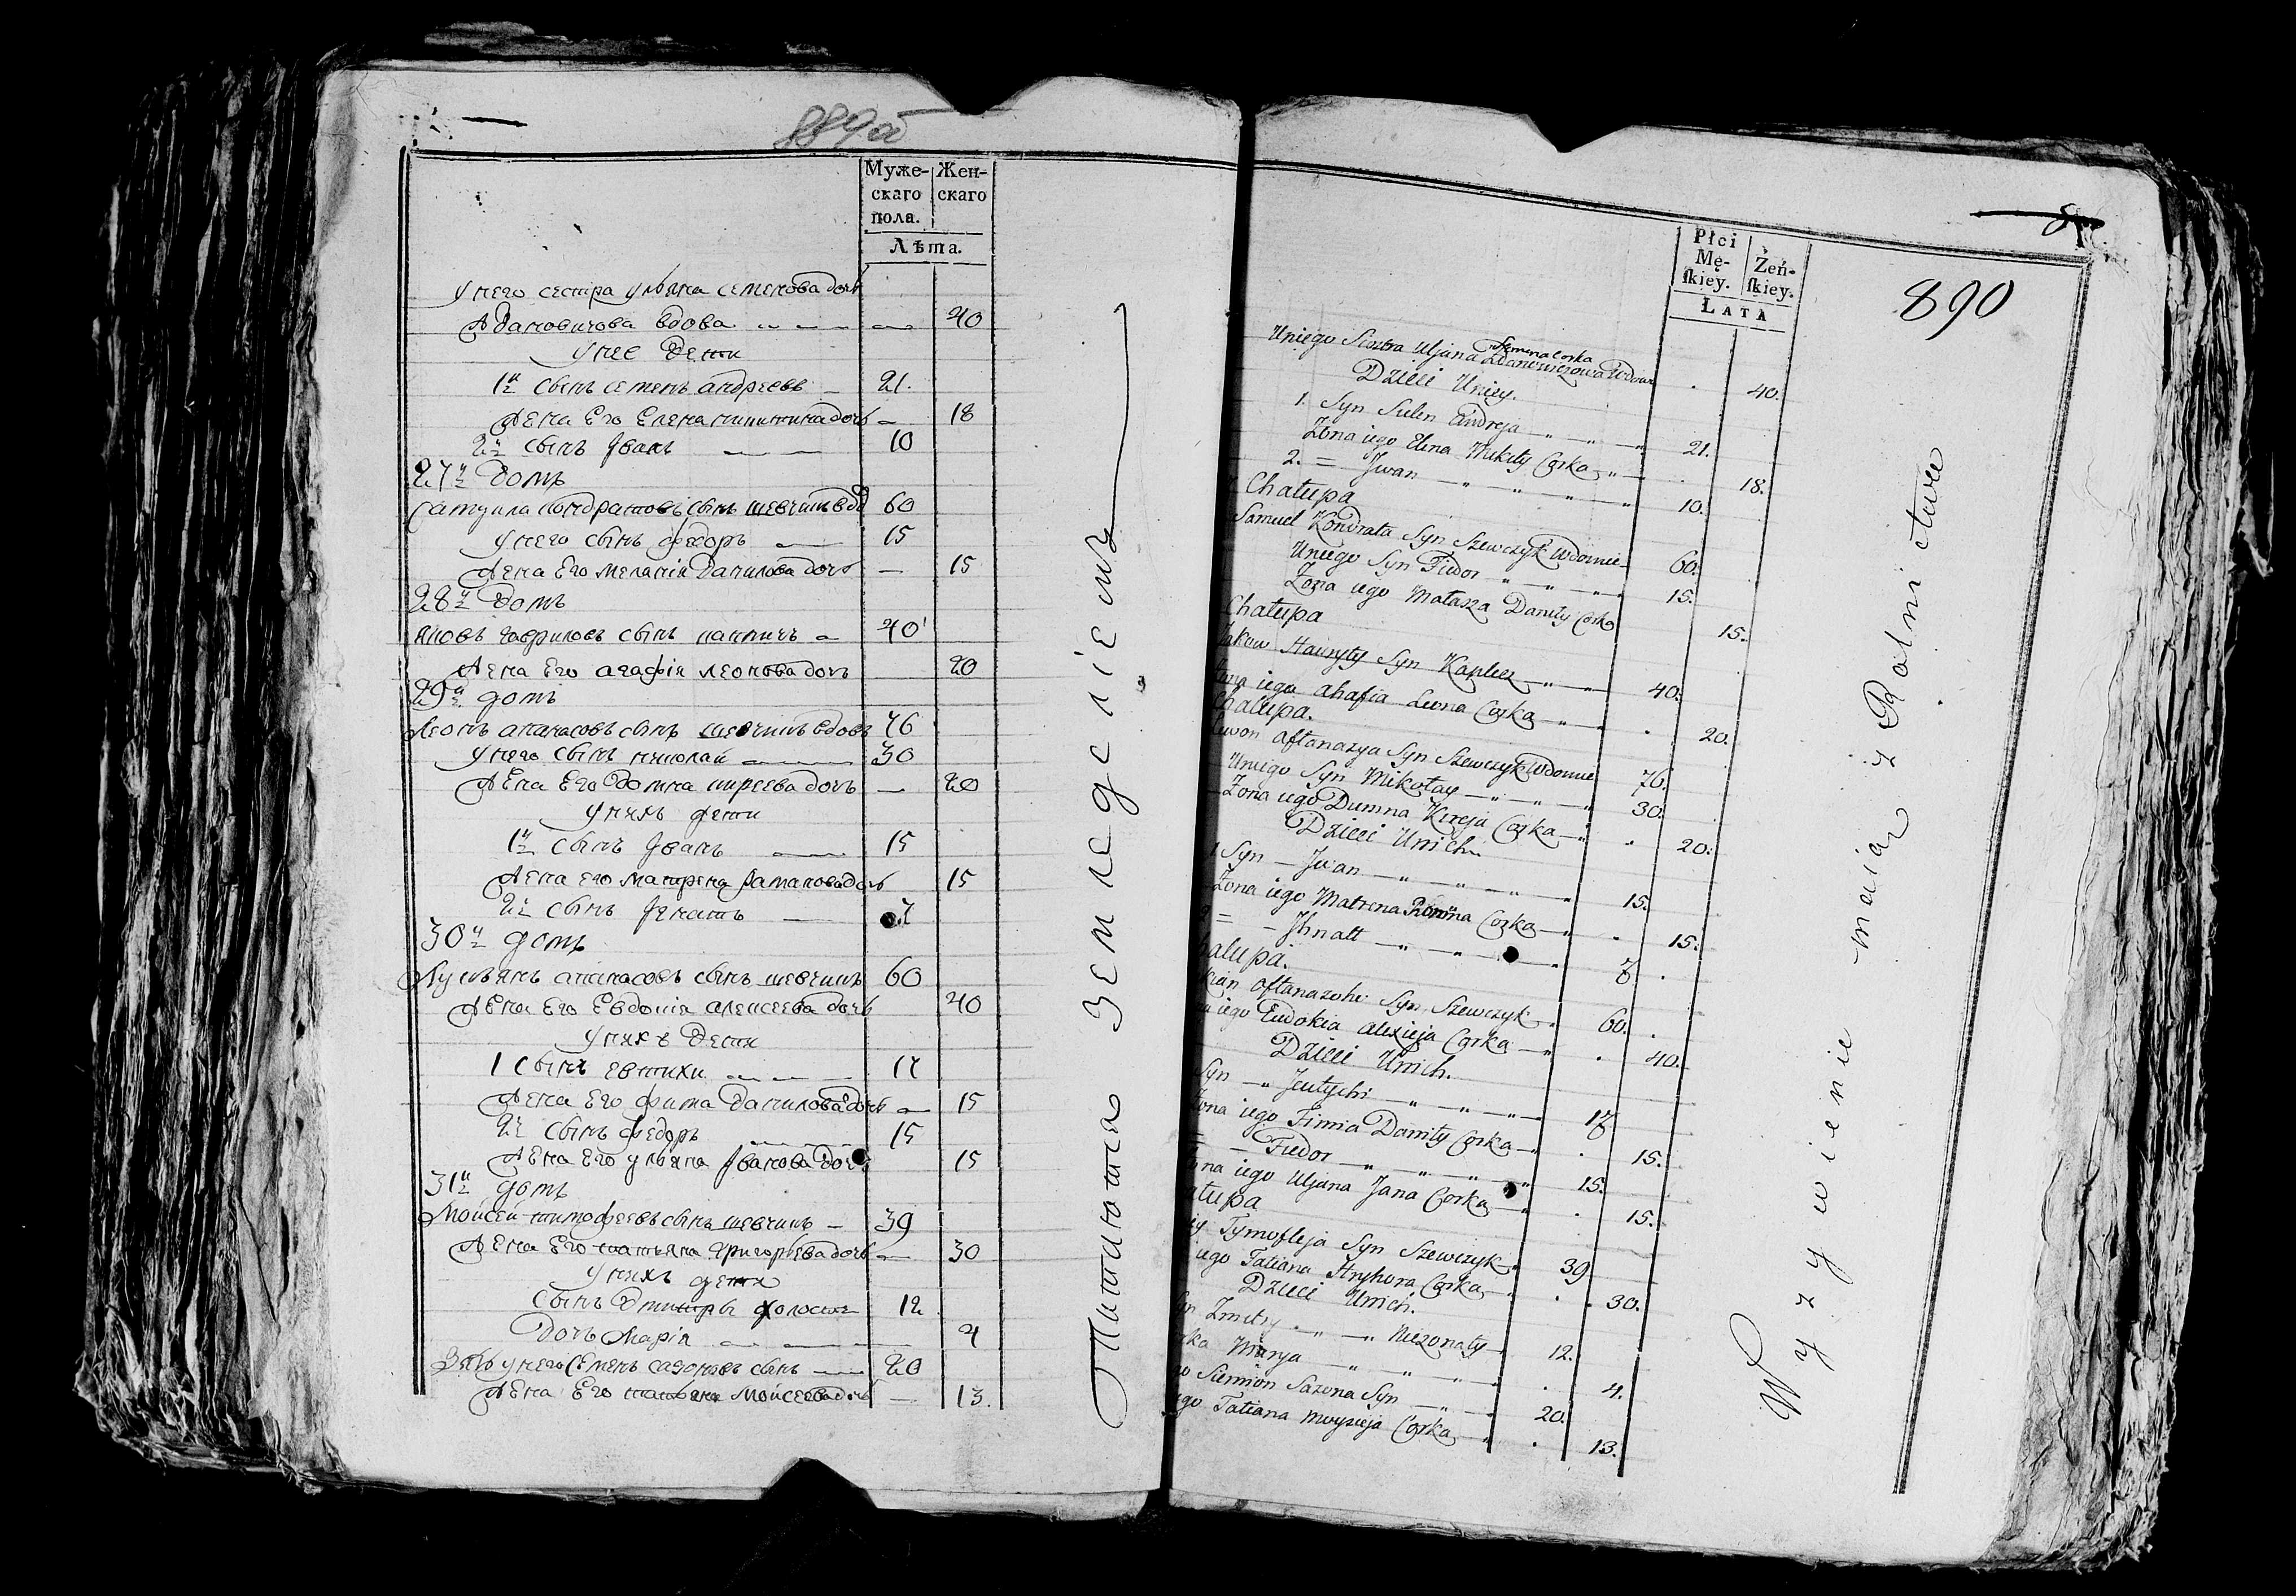 889об
Муже-
скаго
пола.
Жен-
скаго
Лѣта.
у него сестра ульяна семенова дочь
Адамовичова вдова 40
у нее дети
1й сынъ семенъ андреевъ 21.
Жена Его Елена никитина дочь 18
2й сынъ Иванъ 10
27й домъ
Самуила кондратовъ сынъ шевчикъ вдо 60
у него сынъ федоръ 15
Жена Его меланія данилова дочь 15
28й домъ
яковъ гавриловъ сынъ 40
Жена Его агафія леонова дочь 20
29й домъ
Леонъ апанасовъ сынъ шевчикъ вдовъ 76
у него сынъ николай 30
Жена Его домна киреева дочь 20
у нихъ дети
1й сынъ Иванъ 15
Жена его матрена раманова дочь 15
2й сынъ Игнатъ 7
30й домъ
Лукьянъ апанасовъ сынъ шевчикъ 60
Жена Его Евдокія алексеева дочь 40
у нихъ дети
1 сынъ евтихи 17
Жена Его фима данилова дочь 15
2й сынъ федоръ 15
Жена Его ульяна Иванова дочь 15
31й домъ
Моисей тимофеевъ сынъ шевчикъ 39
Жена Его татьяна григорьева дочь 30
у нихъ дети
сынъ дмитръ холостъ 12
дочь Марія 4
Зять у него Семенъ сазоновъ сынъ 20
Жена Его татьяна Моисеева дочь 13.
Питаются земледеліемъ
890
Płci
Mę-
skiey.
Żeń-
skiey.
Lata
Uniego Siostra Uljana Semena Corka Wdowa 40.
Dzieci Uniey.
1. Syn Andreja 21.
Zona iego Elena Mikity Corka 18.
2. = Jwan 10.
Chałupa
Samuel Kondrata Syn Szewczyk Wdowiec 60.
Uniego Syn Fiedor 15.
Zona iego Małasza Daniły Corka 15.
Chałupa
Jakow Hawryły Syn 40.
iego ahafia Leona Corka 20.
Chałupa.
Lewon aftanazya Syn Szewczyk Wdowiec 76.
Uniego Syn Mikołay 30.
Zona iego Dumna Kireja Corka 20.
Dzieci Unich.
1. Syn — Jwan 15.
Zona iego Matrona Corka 15.
= Jhnatt 7.
hałupa.
kian Syn Szewczyk 60.
iego Eudokia alexieja Corka 40.
Dzieci Unich.
Syn Jeutychi 17
Zona iego Fimia Daniły Corka 15.
= Fiedor 15.
na iego Uljana Jana Corka 15.
ałupa
Tymofieja Syn Szewczyk 39
iego Tatiana Hryhora Corka 30.
Dzieci Unich.
Zmitry Niezonaty 12.
rka Marya 4.
Siemion Sazona Syn 20.
go Tatiana Moyzieja Corka 13.
Wyzywienie maią z Rolnictwa